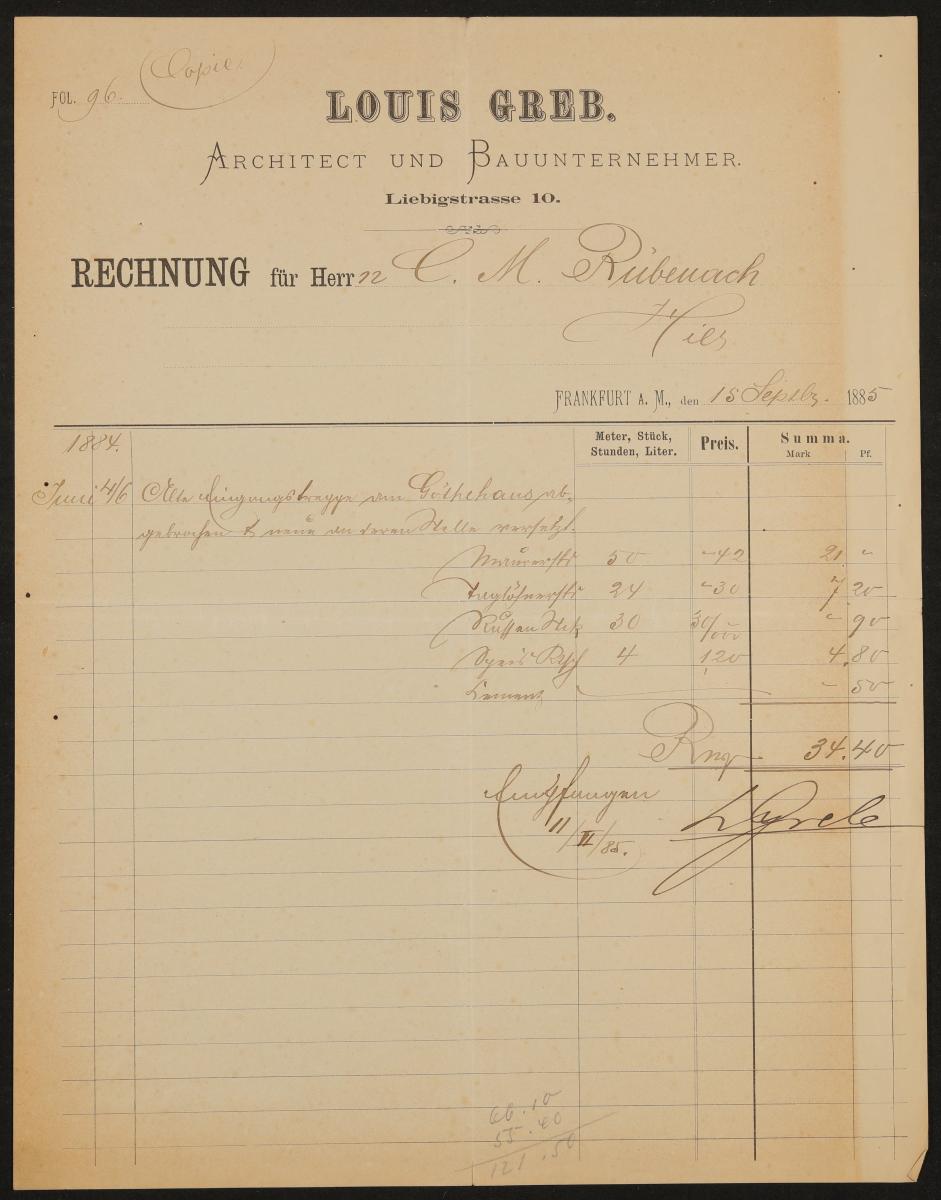 Copie.
FOL. 96.
LOUIS GREB.
ARCHITECT UND BAUUNTERNEHMER.
Liebigstrasse 10.
RECHNUNG für Herrn C. M. Rübenach
Hier
FRANKFURT A. M., den 15 Septbr. 1885
1884.
Meter, Stück, Stunden, Liter. Preis. Summa. Mark Pf.
Juni 4/6 Alte Eingangstreppe am Göthehaus, ab-
gebrochen & neue an deren Stelle versetzt.
Maurerstd 50 -42 21. "
Taglöhnerstd 24 -30 7.20
Stck 30 30/000 " 90
Speis 4 120 4.80
Cement - 50
34.40
Empfangen
11/II/85.
LGreb
66.10
55.40
121.50